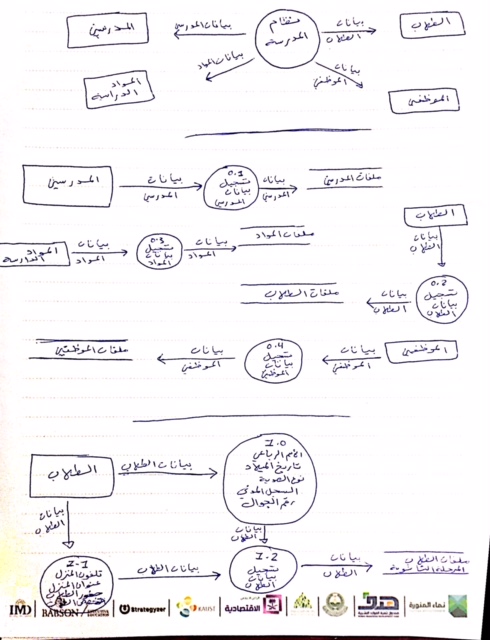 المدرسين
بيانات المدرسين
نظام
المدرسة
بيانات
الطلاب
الطلاب
المواد
الدراسية
بيانات المواد
بيانات
الموظفين
الموظفين
المدرسين
بيانات
المدرسين
0.1
تسجيل
بيانات
المدرسين
بيانات
المدرسين
ملفات المدرسين
الطلاب
بيانات
الطلاب
المواد
الدراسية
بيانات
المواد
0.3
تسجيل
بيانات
المواد
بيانات
المواد
ملفات المواد
0.2
تسجيل
بيانات
الطلاب
بيانات
الطلاب
ملفات الطلاب
الموظفين
بيانات
الموظفين
0.4
تسجيل
بيانات
الموظفين
بيانات
الموظفين
ملفات الموظفين
الطلاب
بيانات الطلاب
1.0
الاسم الرباعي
تاريخ الميلاد
نوع الهوية
السجل المدني
رقم الجوال
بيانات
الطلاب
بيانات
الطلاب
1-1
تلفون المنزل
عنوان المنزل
بيانات الطلاب
1-2
تسجيل
بيانات
الطلاب
بيانات
الطلاب
ملفات الطلاب
المرحلة الثانوية
IMD
BABSON
Strategyzer
KAUST
الاقتصادية
هدف
نماء المنورة